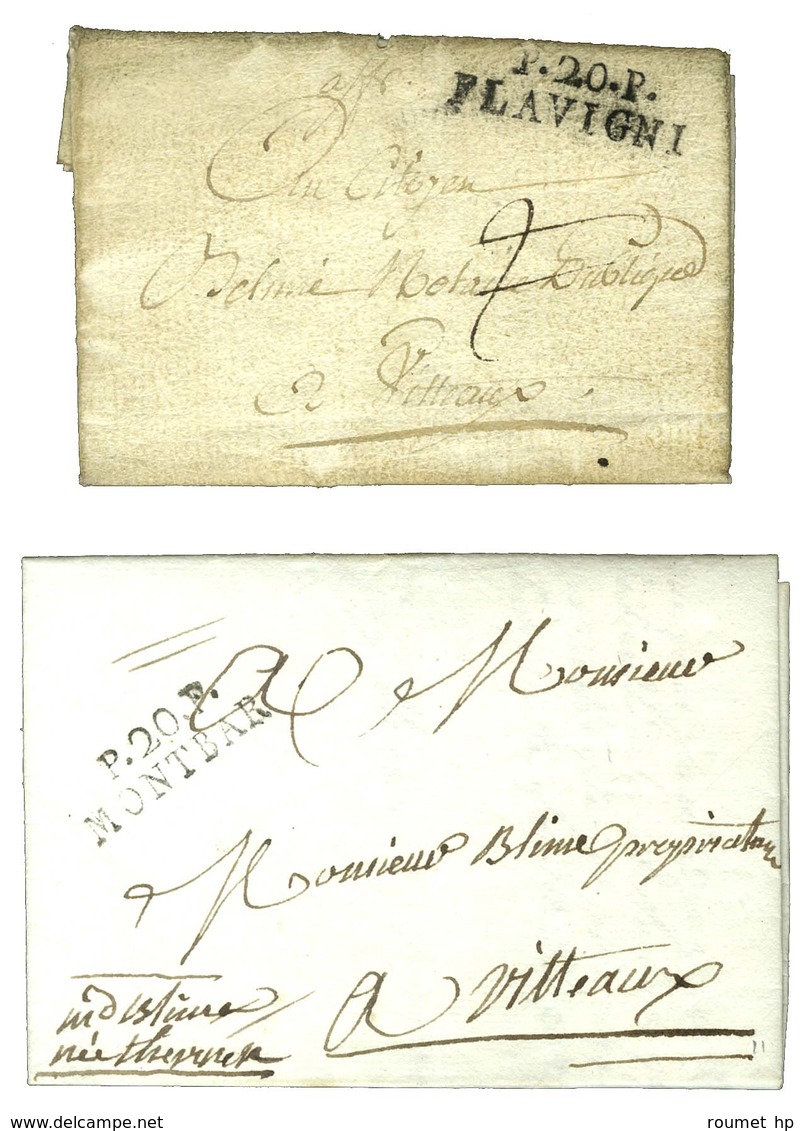 P.20.P.
FLAVIGNI
aff
Au Citoyen
Notaire Publique
a Vitteaux
P.20.P.
MONTBAR
A Monsieur
Monsieur Blime propriétaire
a Vitteaux
md Blime
née
roumet hp